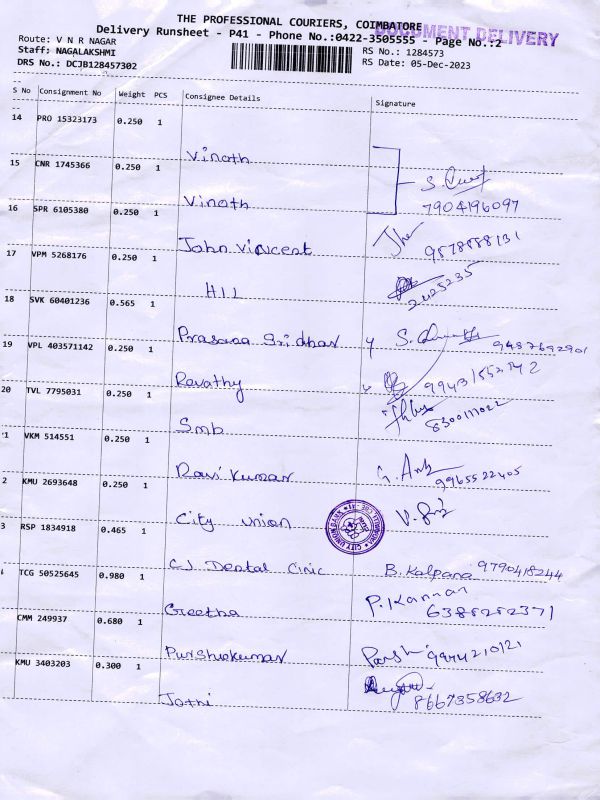 THE PROFESSIONAL COURIERS, COIMBATORE
DOCUMENT DELIVERY
Delivery Runsheet - P41 - Phone No.:0422-3505555 - Page No.:2
Route: V N R NAGAR
RS No.: 1284573
Staff: NAGALAKSHMI
RS Date: 05-Dec-2023
DRS No.: DCJB128457302
S No Consignment No Weight PCS Consignee Details Signature
14 PRO 15323173 0.250 1
Vinoth
15 CNR 1745366 0.250 1
S.
Vinoth 7904196097
16 SPR 6105380 0.250 1
John Vincent 9578888131
17 VPM 5268176 0.250 1
HIL 2425235
18 SVK 60401236 0.565 1
Prasana Sridhar S. 9487692901
19 VPL 403571142 0.250 1
Revathy
20 TVL 7795031 0.250 1
Smb 8300111022
1 VKM 514551 0.250 1
Ravi Kumar 9965522405
2 KMU 2693648 0.250 1
City union V.
CITY UNION BANK
3 RSP 1834918 0.465 1
CJ Dental Cinic B. Kalpana 9790418244
TCG 50525645 0.980 1
Geetha P. Kannan 6385252371
CMM 249937 0.680 1
Purshokumar 9994210121
KMU 3403203 0.300 1
Jothi 8667358632